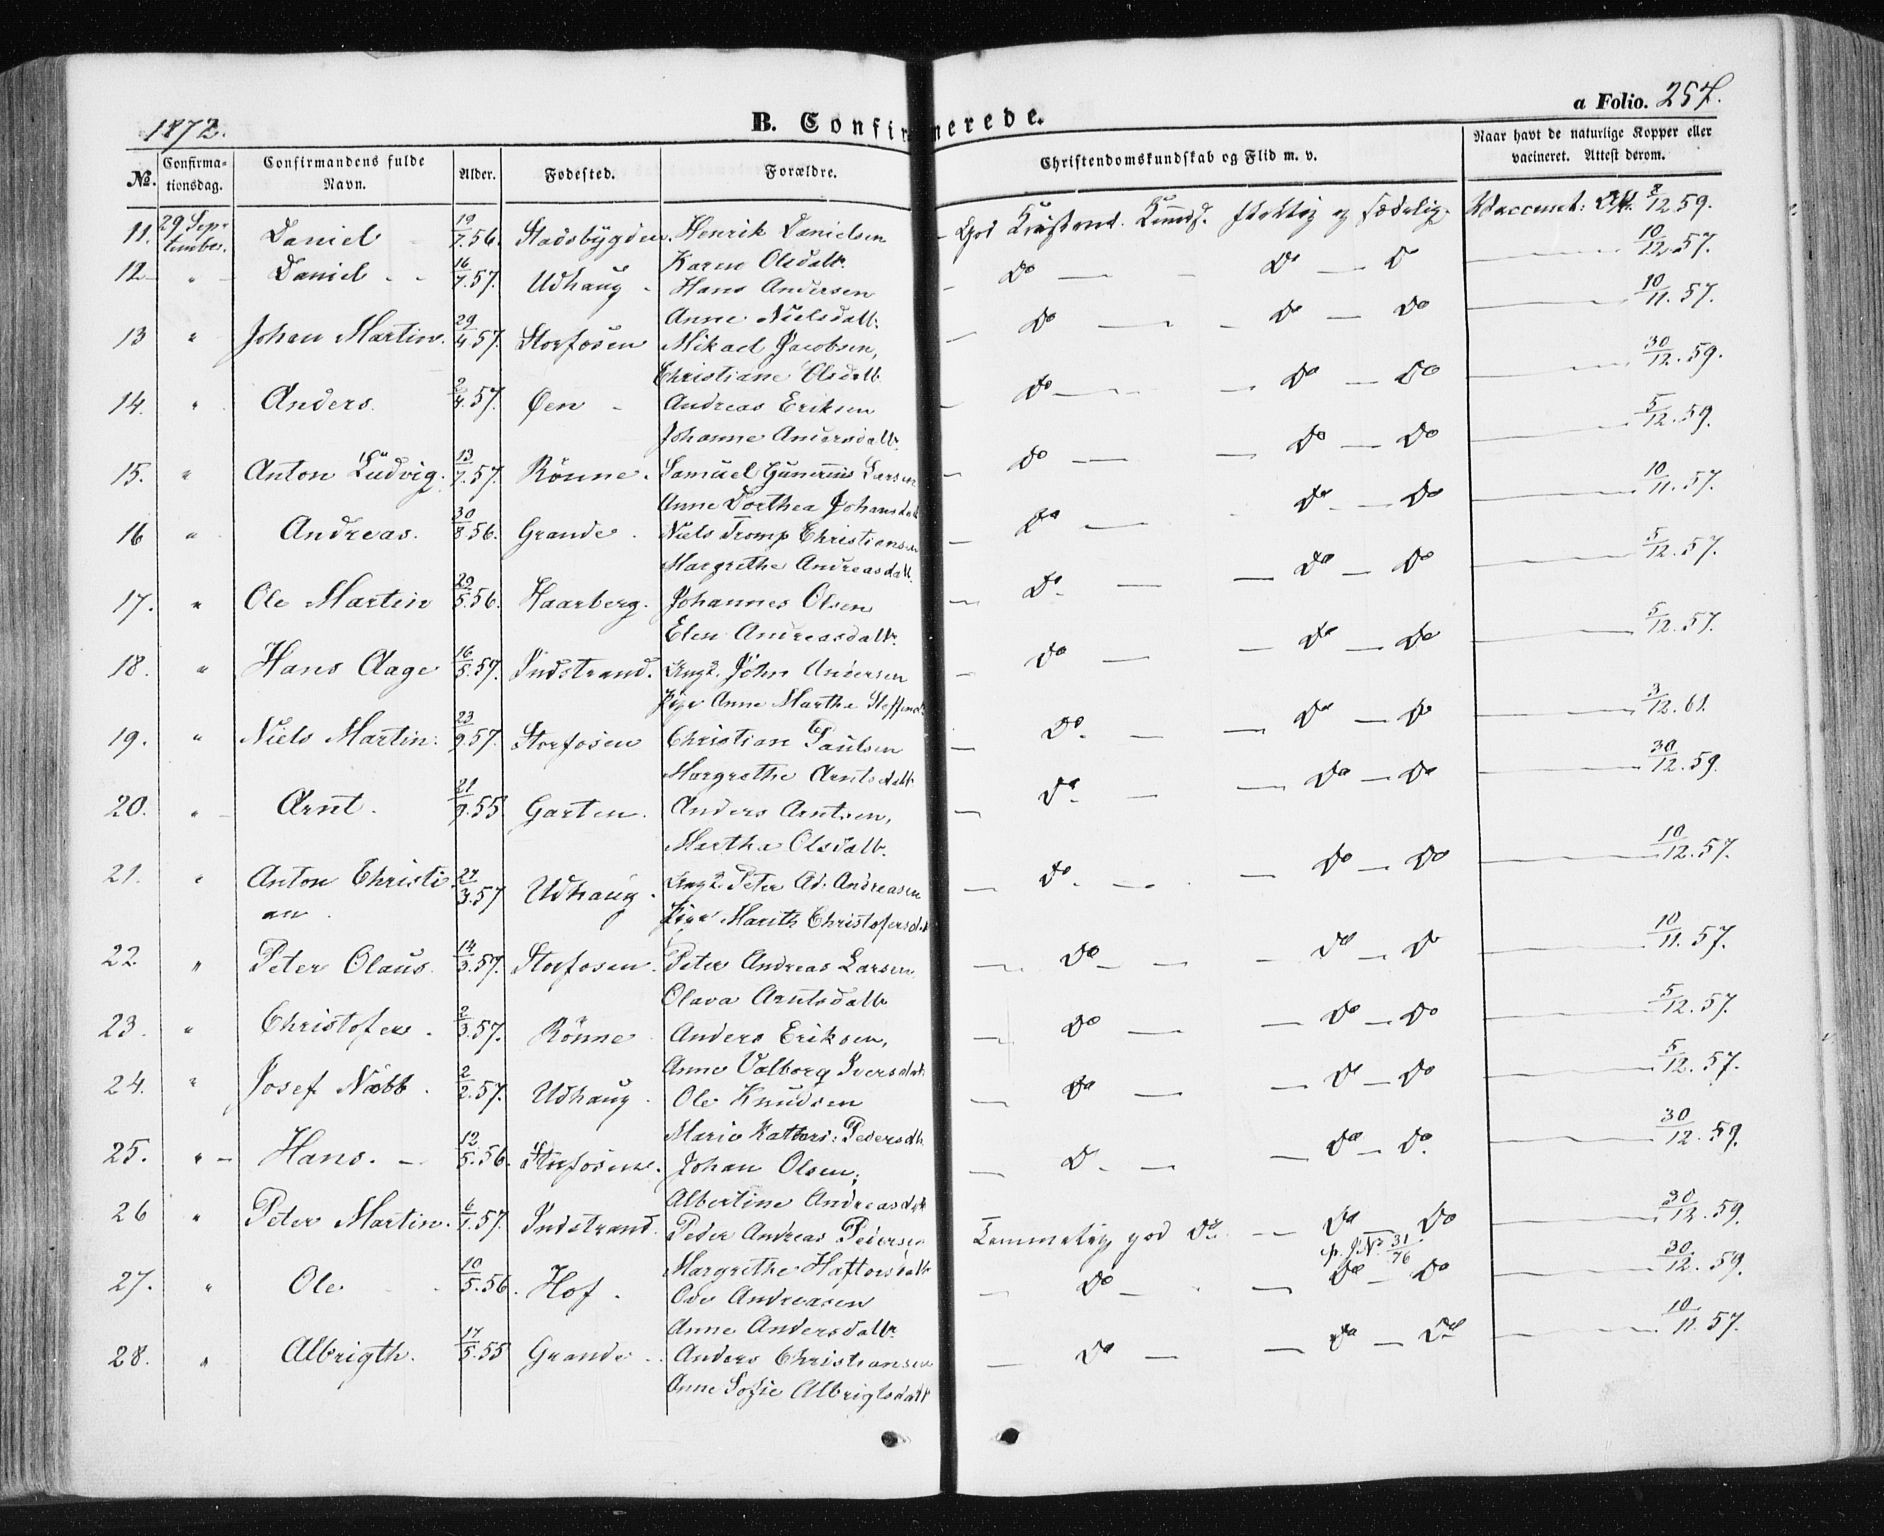 1872. B. Confirmerede. a Folio. 257.
No. Confirmationsdag. Confirmandens fulde Navn. Alder. Fødested. Forældre. Christendomskundskab og Flid m. v. Naar havt de naturlige Kopper eller vacineret. Attest derom.
11. 29 September. Daniel 19/7.56. Stadsbygden. Henrik Danielsen - God 8/12 59.
Karen Olsdatt.
12 " Daniel 16/7.57. Udhaug Hans Andersen - Do — Do — D — 10/12.57.
Anne Nielsdatt.
13 " Johan Martin. 29/4 57. Storfosen Mikael Jacobsen, — Do — Do — Do — 10/11.57.
Christiane Olsdatt
14. " Anders. 2/4.57. Øen - Andreas Eriksen — Do — Do — Do — 30/12.59.
Johanne Andersdatt.
15. " Anton Ludvig. 13/7.57. Rönne. Samuel Gunerius Larsen — Do — Do — Do — 5/12.59.
Anne Dorthea Johansdat
16 " Andreas. 30/8 56. Grande. Niels Tromp Christiansen — Do — Do — Do — 10/11.57.
Margrethe Andreasdatt.
17. " Ole Martin 29/5.56. Haarberg. Johannes Olsen — Do. — Do — Do — 5/12.57.
Elen Andreasdatt.
18. " Hans Aage 16/5.57. Indstrand. Ungk. John Andersen — Do — Do — Do — 5/12.57.
Pige Anne Marthe Steffensd.
19. " Niels Martin. 23/9 57. Storfosen Christian Paulsen — Do. — Do — Do — 3/12.61.
Margrethe Arntsdatt
20. " Arnt. 21/9.55. Garten. Anders Arntsen, — Do. — Do — Do — 30/12.59.
Martha Olsdatt.
21. " Anton Christi- 3.57 Udhaug. Ungk. Peter Ad. Andreasen — Do. — Do — Do — 10/12.57.
an. Pige Marith Christofersd.
22. " Peter Olaus. 14/3.57. Storfosen. Peter Andreas Larsen — Do — Do — D — 10/11.57.
Olava Arntsdatt
23. " Christofer. 2/3.57. Rönne Anders Eriksen, — Do — Do — Do — 5/12.57.
Anne Valborg Iversdat
24. " Josef Næbb. 2/2.57. Udhaug. Ole Knudsen — Do — D — Do — 5/12.57.
Marie Pedersdt
25. " - Hans. - 12/5.56. Storfosen. Johan Olsen, — D. — Do — Do. — 30/12.59.
Albertine Andreasdat
26 " Peter Martin. 6/1.57. Indstrand. Peder Andreas Pedersen Temmelig god Do — Do — Do — 30/12.59.
31/76
Margrethe Haftorsdatt
27. " Ole 10/5.56. Hof. Ove Andreasen — Do — Do — Do — 30/12.59.
Anne Andersdatt
28. " Albrigth. 17/5.55 Grande. Anders Christiansen — Do — Do — Do — 10/11.57.
Anne Sofie Albrigtsdatt